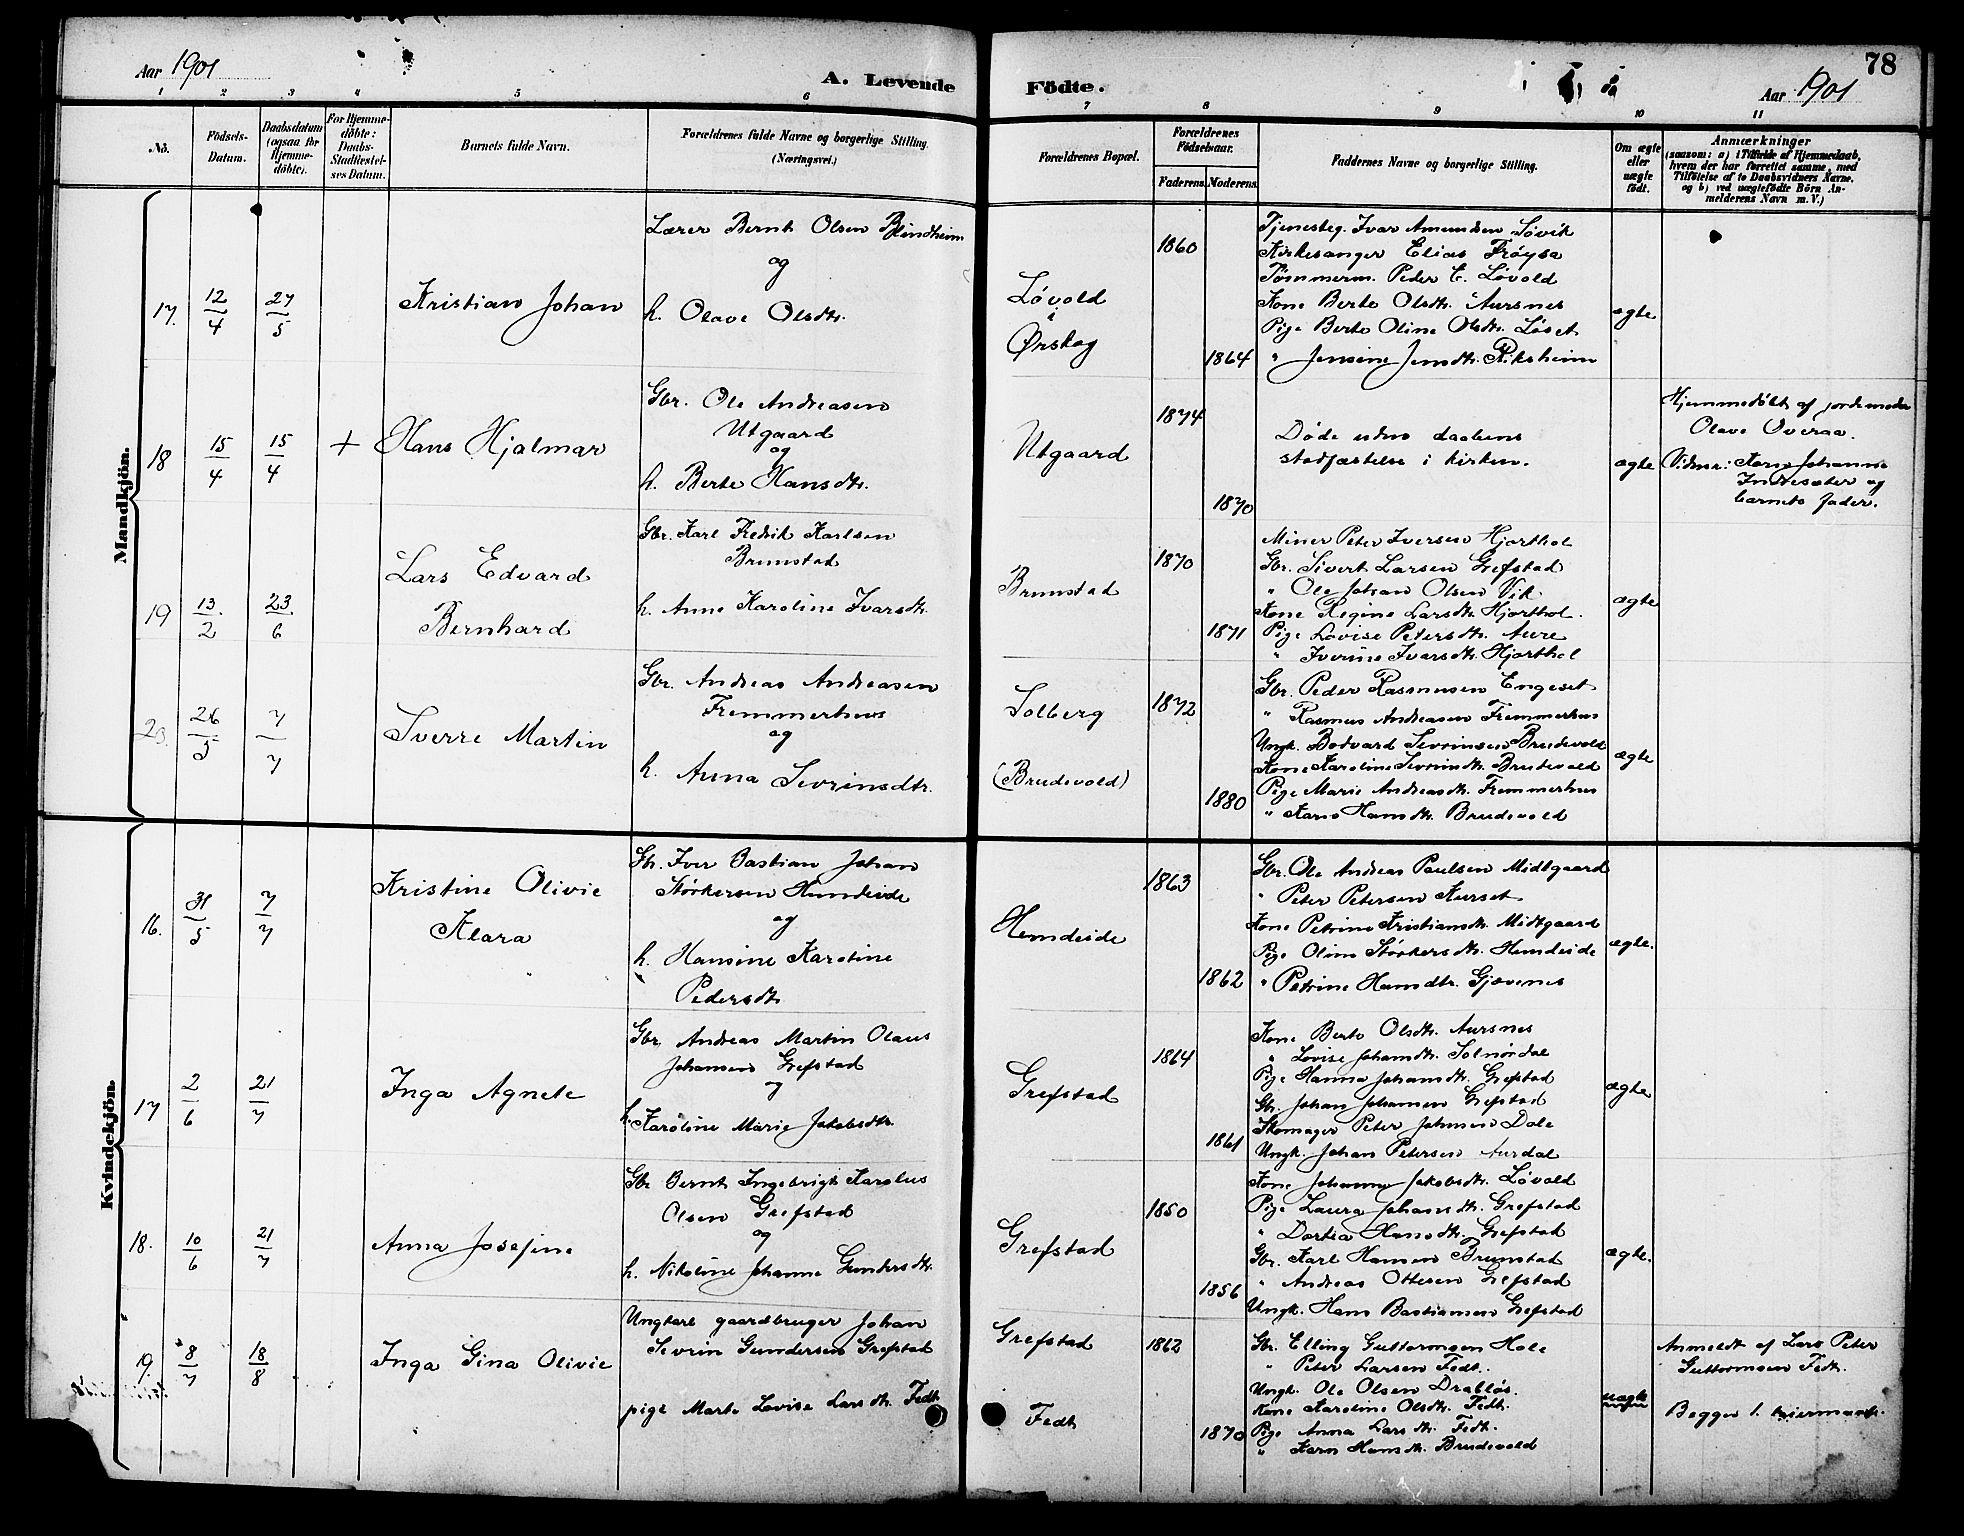 Aar 1901
A. Levende
Födte.
Aar 1901
78
1 2 3 4 5 6 7 8 9 10 11
No.
Födsels-
Datum.
Daabsdatum
(ogsaa for
Hjemme-
döbte).
For Hjemme-
döbte:
Daabs-
Stadfæstel-
ses Datum.
Barnets fulde Navn.
Forældrenes fulde Navne og borgerlige Stilling.
(Næringsvei.)
Forældrenes Bopæl.
Forældrenes
Födselsaar.
Faderens.
Moderens.
Faddernes Navne og borgerlige Stilling.
Om ægte
eller
uægte
födt.
Anmærkninger
(saasom: a) i Tilfælde af Hjemmedaab,
hvem der har forrettet samme, med
Tilföielse af to Daabsvidners Navne.
og b) ved uægtefödte Börn An-
melderens Navn m. V.)
Mandkjön.
17.
12/4
27/5
Kristian Johan
Lærer Bernt Olsen Blindheim
og
h. Olave Olsdtr.
Løvold
i
Ørskog
1860
1864
Tjenesteg. Ivar Amundsen Søvik
Kirkesanger Elias Frøysa
Tømmerm. Peder E. Løvold
Kone Berte Olsdtr. Aursnes
Pige Berte Oline Olsdtr. Løset
" Jensine Jensdtr. Riksheim
ægte
18
15/4
15/4
+
Hans Hjalmar
Gbr. Ole Andreasen
Utgaard
og
h. Berte Hansdtr.
Utgaard
1874
1870
Døde uden daabens
stadfæstelse i kirken.
ægte
Hjemmedøbt af jordemoder
Olave Overaa.
Vidner: Karn Johanne
Indresæter og
barnets fader.
19
13/2
23/6
Lars Edvard
Bernhard
Gbr. Karl Fredrik Karlsen
Brunstad
h. Anne Karoline Ivarsdtr.
Brunstad
1870
1871
Miner Peter Iversen Hjorthol
Gbr. Sivert Larsen Grefstad
" Ole Johan Olsen Vik
Kone Regine Larsdtr. Hjorthol.
Pige Lovise Petersdtr. Aure
" Iverine Ivarsdtr. Hjorthol
ægte
20.
26/5
7/7
Sverre Martin
Gbr. Andreas Andreasen
Fremmerhus
og
h. Anna Sevrinsdtr.
Solberg
(Brudevold)
1872
1880
Gbr. Peder Rasmusen Engeset
" Rasmus Andreasen Fremmerhus
Ungk. Bodvard Sevrinsen Brudevold
Kone Karoline Sevrindtr. Brudevold
Pige Marie Andreasdtr. Fremmerhus
" Karn Hansdtr. Brudevold
ægte
Kvindekjön.
16.
31/5
7/7
Kristine Olivie
Klara
Gbr. Iver Bastian Johan
Størkersen Hundeide
og
h. Hansine Karoline
Pedersdtr.
Hemdeide
1863
1862
Gbr. Ole Andreas Paulsen Midtgaard
" Peter Petersen Kurset
Kone Petrine Kristiansdtr. Midtgaard
Pige Oline Størkersdtr. Hundeide
" Petrine Hansdtr. Gjævenes
ægte.
17
2/6
21/7
Inga Agnete
Gbr. Andreas Martin Olaus
Johansen Grefstad
og
h. Karoline Marie Jakobsdtr.
Grefstad
1864
1861
Kone Berte Olsdtr. Aursnes
" Lovise Johansdtr. Solnørdal
Pige Hanna Johansdtr. Grefstad
Gbr. Johan Johansen Grefstad
Skomager Peter Johnsen Dale
Ungk. Johan Petersen Aurdal
ægte
18.
10/6
21/7
Anna Josefine
Gbr Bernt Ingebrigt Karolus
Olsen Grefstad
og
h. Nikoline Johanne Gundersdtr.
Grefstad
1850
1856
Kone Johanne Jakobsdtr. Løvold
Pige Laura Johansdtr. Grefstad
" Dortea Hansdtr. Grefstad
Gbr. Karl Hansen Brunstad
" Andreas Ottesen Grefstad
Ungk. Hans Bastiansen Grefstad
ægte.
19.
8/7
18/8
Inga Gina Olivie
Ungkarl gaardbruger Johan
Sevrin Gundersen Grefstad
pige Marte Lovise Larsdtr. Fedt
Grefstad
Fedt
1862
1870
Gbr. Elling Guttormsen Hole
" Peter Larsen Fedt.
Ungk. Ole Olsen Drabløs.
Kone Karoline Olsdtr. Fedt.
Pige Anna Larsdtr. Fedt.
" Karn Hansdtr. Brudevold
uægte
Anmeldt af Lars Peter
Guttormsen Fedt.
Begges 1. leiermaal.